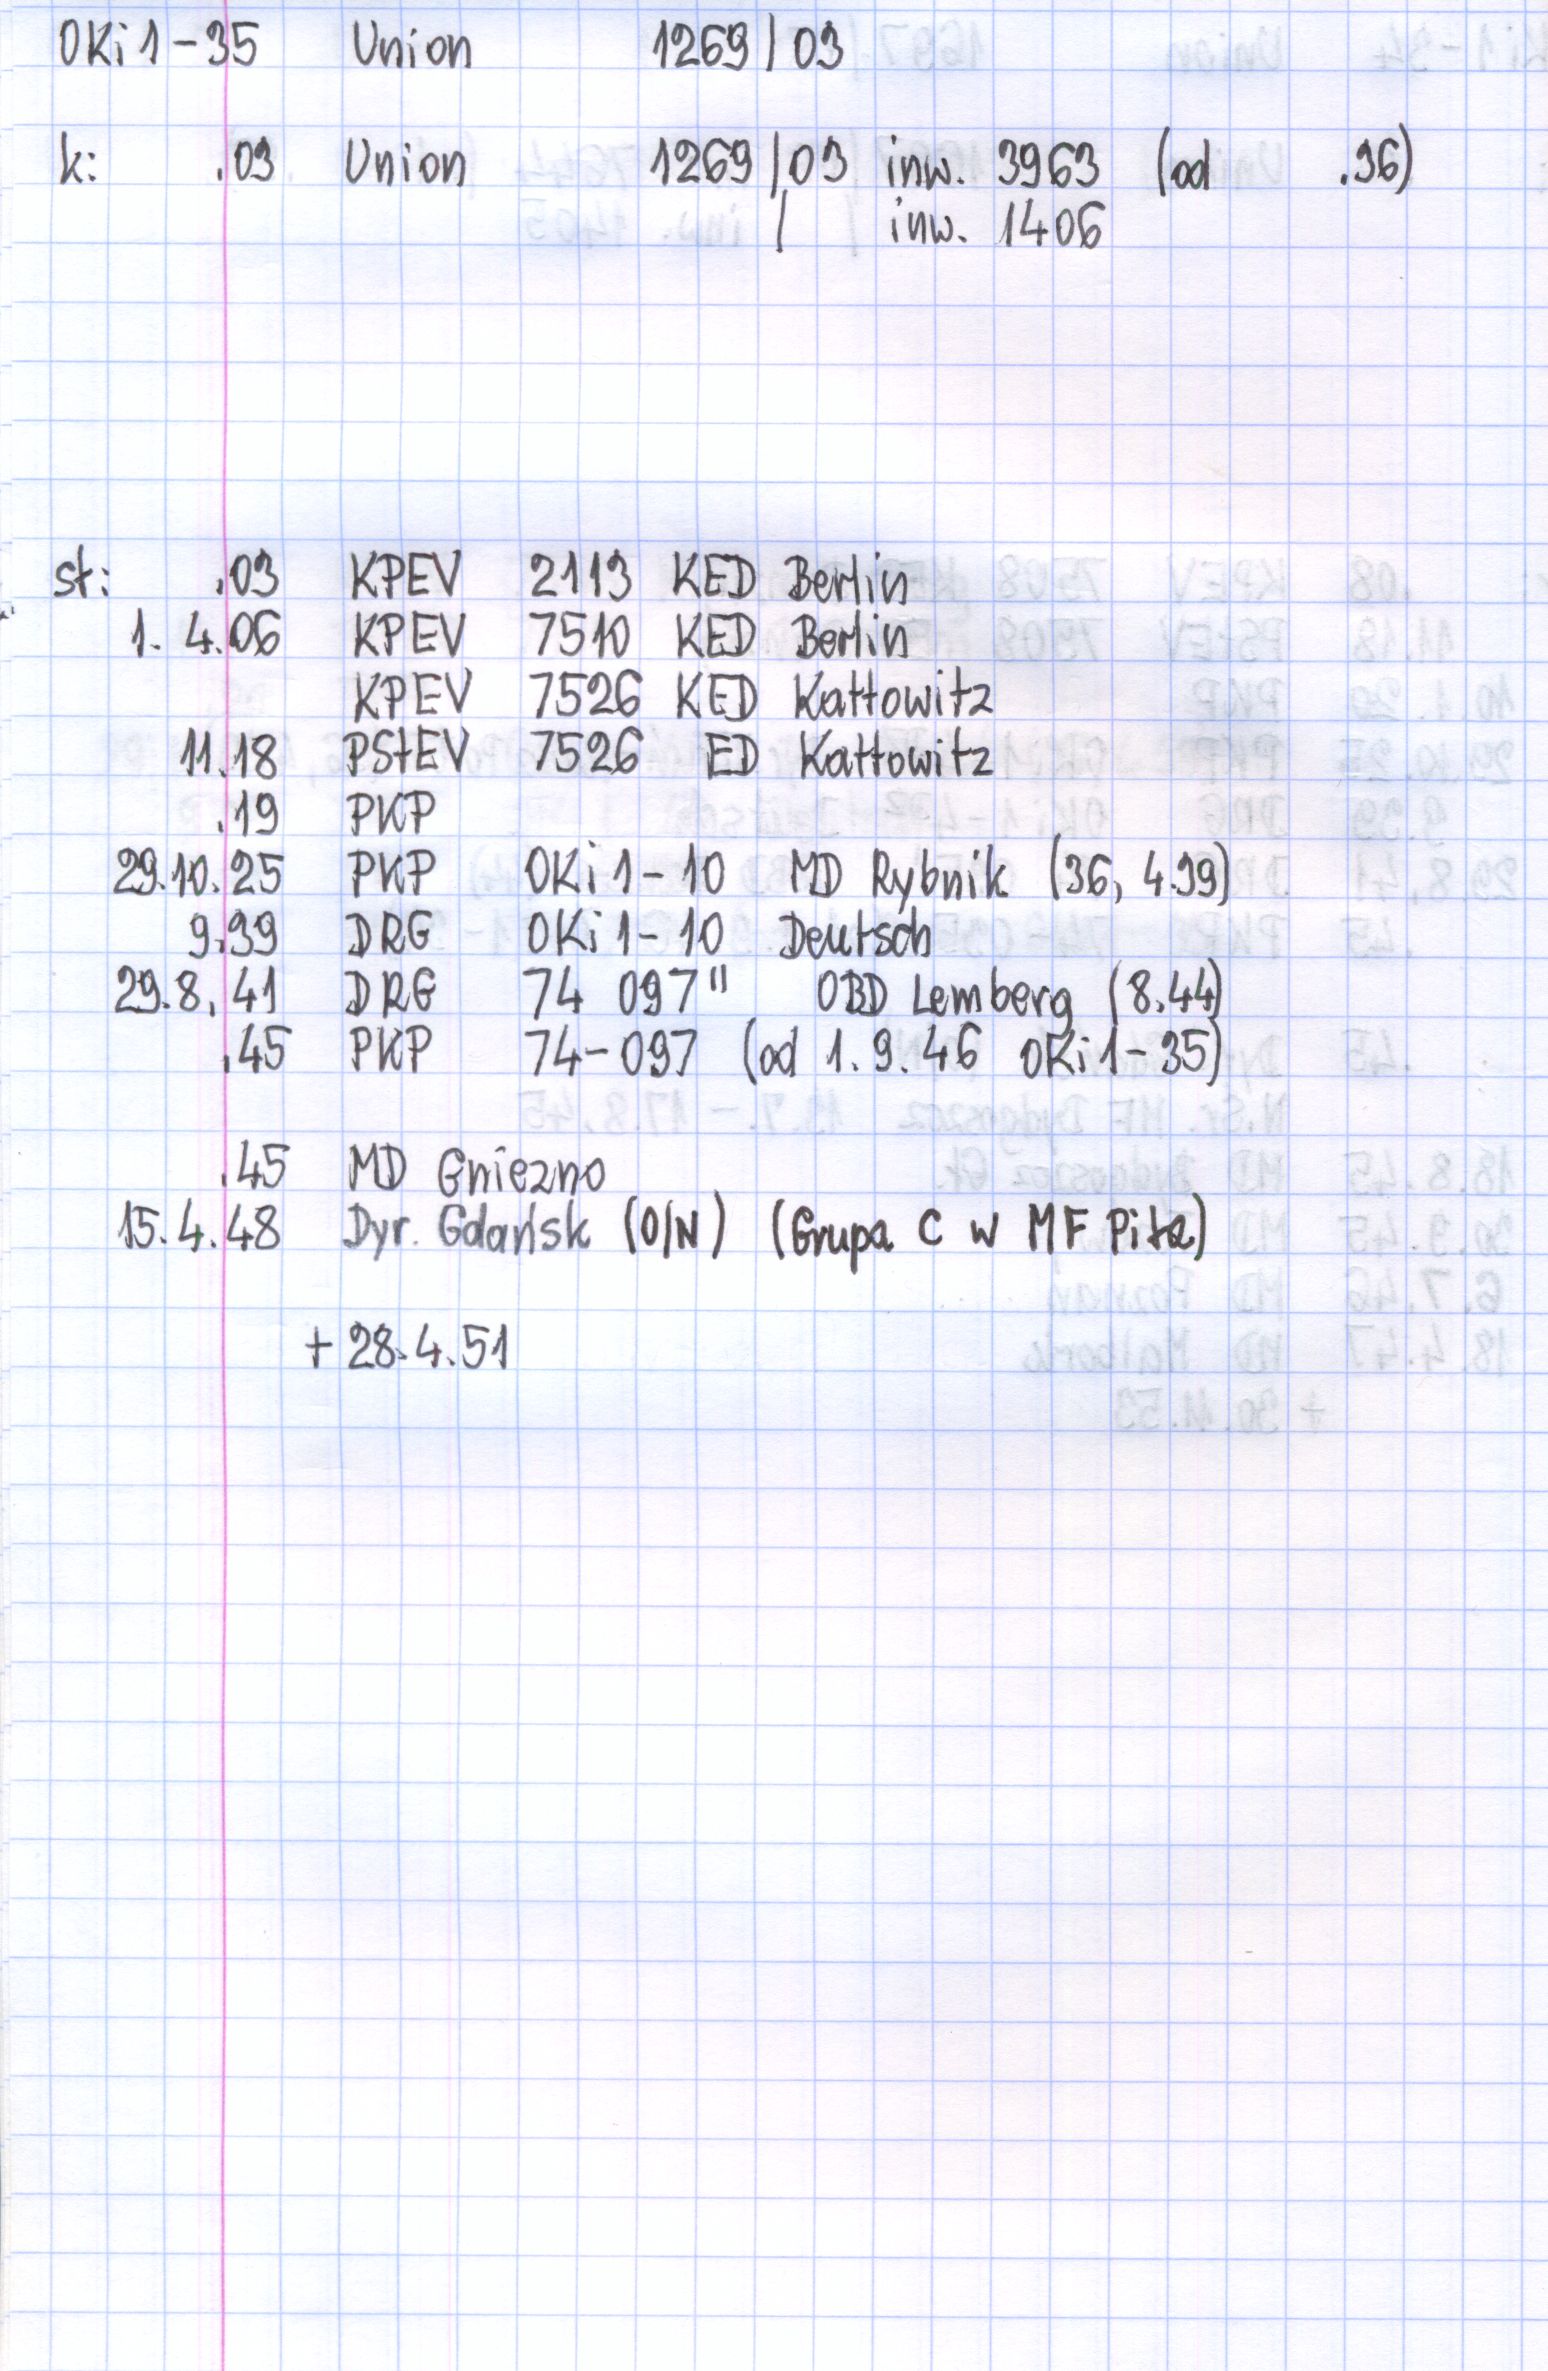 OKi1-35 Union 1269/03
k: .03 Union 1269/03 inw. 3963 (od .36)
/ inw. 1406
st: .03 KPEV 2113 KED Berlin
1.4.06 KPEV 7510 KED Berlin
KPEV 7526 KED Kattowitz
11.18 PStEV 7526 ED Kattowitz
.19 PKP
29.10.25 PKP OKi1-10 MD Rybnik (36, 4.39)
9.39 DRG OKi1-10 Deutsch
29.8.41 DRG 74 097" OBD Lemberg (8.44)
.45 PKP 74-097 (od 1.9.46 OKi1-35)
.45 MD Gniezno
15.4.48 Dyr. Gdańsk (O/N) (Grupa C w MF Piła)
+ 28.4.51